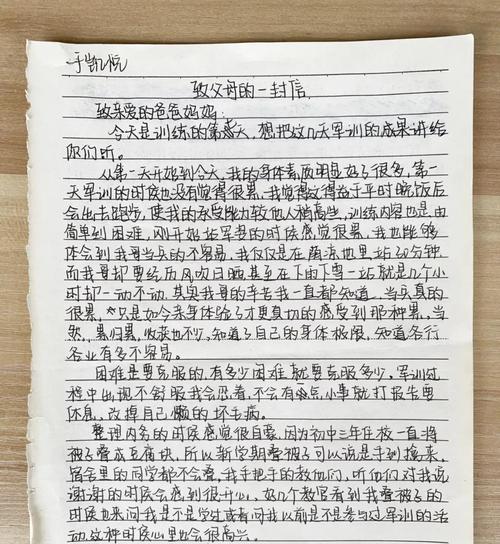 于凯悦
致父母的一封信
致亲爱的爸爸妈妈：
今天是训练的第天，想把这几天军训的成果讲给
你们听。
从第一天开始到今天，我的身体素质明显好了很多，第一
天军训的时候也没有觉得很累，我觉得这得益于平时晚饭后
会出去跑步，使我的承受能力较他人稍高些，训练内容也是由
简单到困难，刚开始站军姿的时候感觉很累，我也能够
体会到我哥当兵的不容易，我仅仅是在荫凉地里站20分钟
而我哥却要经历风吹日晒甚至在下雨下雪一站就是几个小
时却一动不动，其实我哥的辛苦我一直都知道，当兵真的
很累，只是如今亲身体验了才更真切的感受到那种累，当
然，累归累，收获也不少，知道了自己的身体极限，知道各行
各业有多不容易。
困难是要克服的，有多少困难就要克服多少，军训过
程中出现不舒服我会忍着，不会有点小事就打报告要
休息，改掉自己懒的坏毛病。
整理内务的时候感觉很自豪，因为初中三年在校一直将
被子叠成豆腐块，所以新学期叠被子可以说是手到擒来，
宿舍里的同学都不会叠，我手把手的教他们，听他们对我说
谢谢的时候会感到很开心，好几个教官看到我叠被子的
时候也来问我是不是学生或者问我以前是不是参与过军训的活
动，这种时候心里也会很高兴。